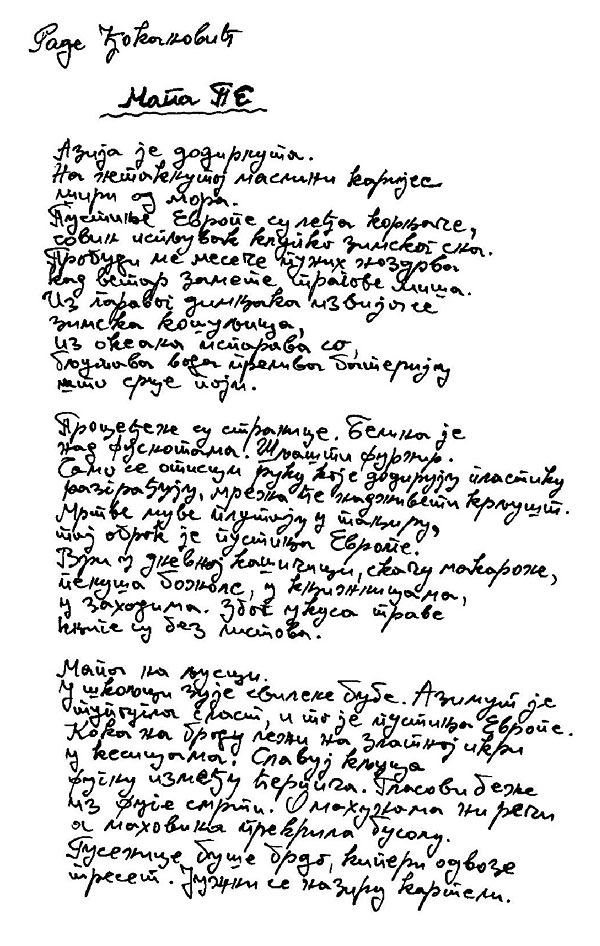 Раде Ђокановић
Мапа ПЕ
Азија је додирнута.
На жтакнутој маслини каријес
мири од мора.
Пустиње Европе су леђа корњаче,
совин испљувак кнутко зимског сна.
Пробуди ме месече пужих ноздрва
кад ветар замете трагове миша.
Из гаравог димњака извија се
зимска кошуљица,
из океана испарава со,
бљутава вода прелива батерију
што срце поји.
Процеђене су странице. Белина је
над фуснотама. Шпашти фурнир.
Само се отисци руку које додирују пластику
разграђују, мрежа ће надживети крљушт.
Мртве муве плутају у тањиру,
тој оброк је пустиња Европе.
Ври у дневној кашичици, скачу макароне,
пекуша божоле, у књижицама,
у заходима. Због укуса траве
књиге су без листова.
Мапа на љусци.
У шкољци зује свилене бубе. Азимут је
сласт, и то је пустиња Европе.
Кока на броду лежи на златној икри
у кесицама. Славуј кљуца
фугну између ћерпича. Гласови беже
из фуге смрти. О махунама ни речи
а маховина прекрила бусолу.
Гусенице буше брдо, кипери одвозе
тресет. Јужни се назиру картели.